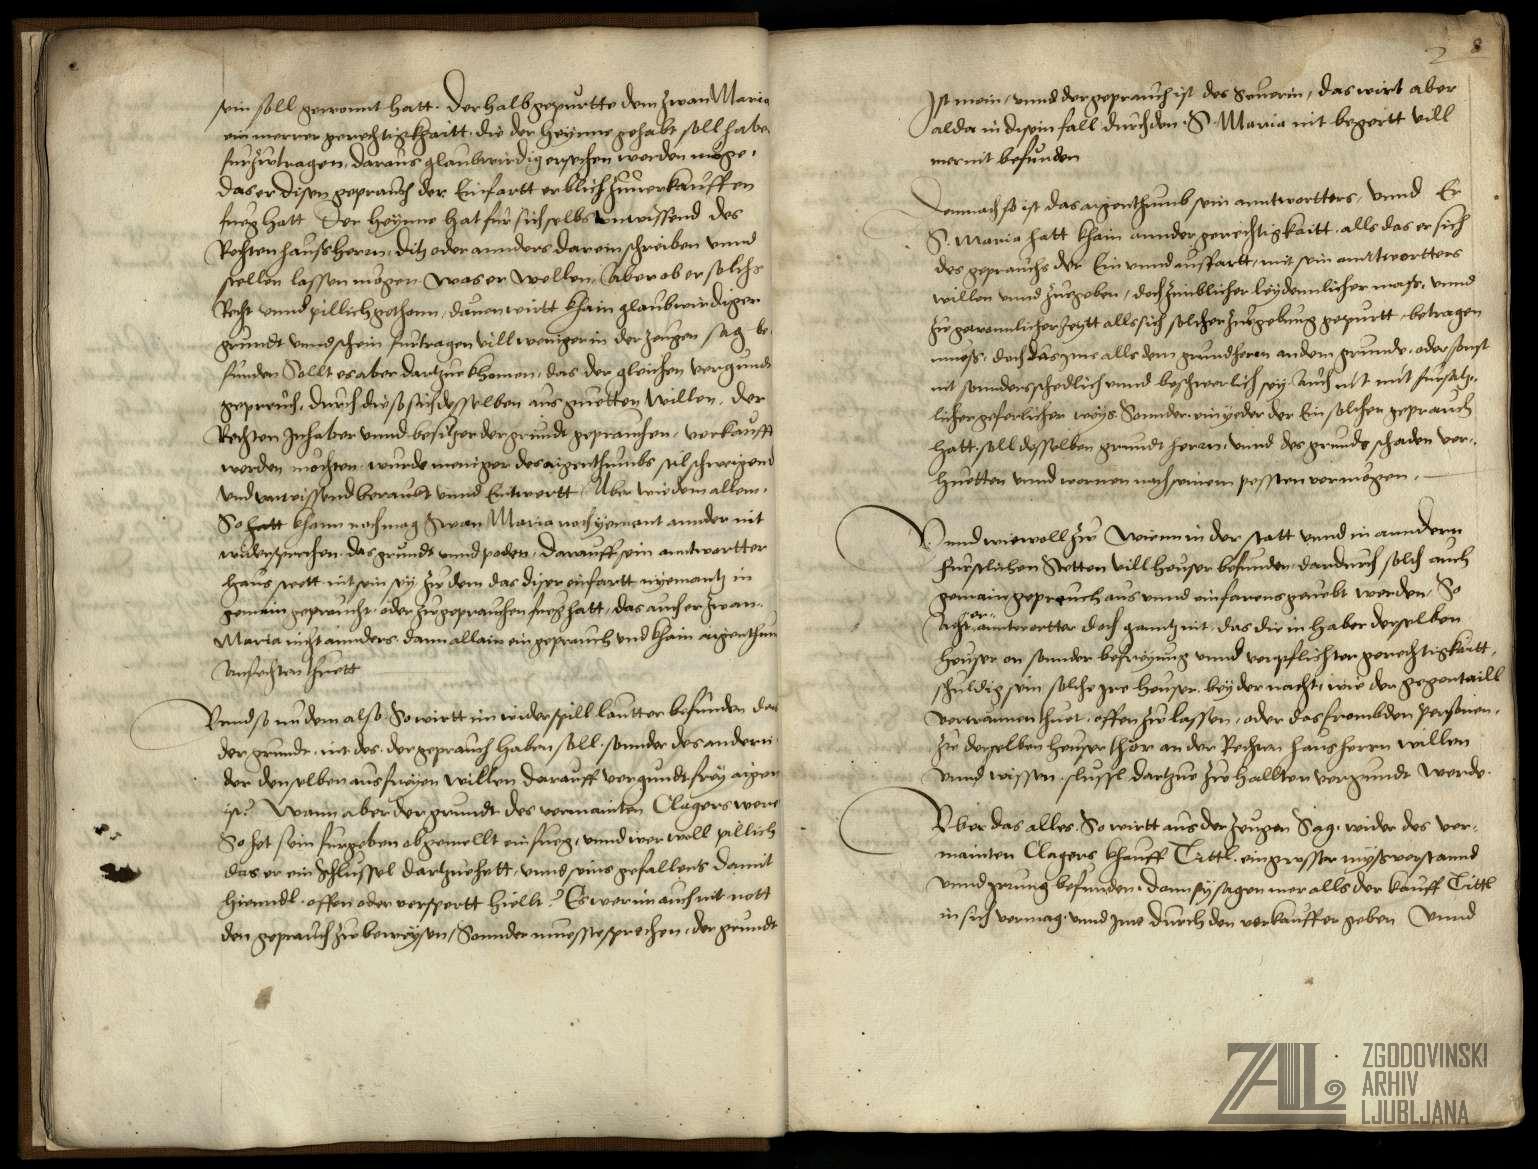 sein soll gewennt hatt. Derhalb gepurtte dem Zwan Maria
ein merrer gerechtigkhaitt, die der Heynne gehabt soll habe
furzutragen, daraus glaubwirdig ersehen werden möge,
das er disen geprauch der Einfartt erblich zuuerkauffen
fueg hatt Der Heynne hat für sich selbs unwissend des
Rechten hausherrn, ditz oder annders darein schreiben unnd
stellen lassen mögen was er wellen, Aber ob er solchs
Recht unnd pillich gethann, dauon wirtt khain glaubwirdiger
grundt unnd schein furtragen vill weniger in der zeugen sag be-
funden Sollt es aber dartzue khomen, das der gleichen vergundt
gepreuch, durch die so sich desselben aus guetten willen, der
Rechten Inhaber unnd besitzer der grundt geprauchen, verkaufft
werden möchten, wurde meniger des aigenthumbs stilschweigend
und unwissend beraubt unnd Entwertt, Aber wie dem allem,
So hatt khann noch mag Zwan Maria noch yemant annder nit
widersprechen, das grundt unnd poden, darauff sein anntwortter
haus stett nit sein sey, zu dem das diser einfartt nyemantz in
gemain gepraucht, oder zugeprauchen fueg hatt, das auch er Zwan
Maria nicht annders, dann allain ein geprauch und khain aigenthum
Anfechten thuett
Unnd so nu dem also, So wirtt im widerspill lautter befunden das
der grundt, nit des, der geprauch haben soll, sonnder des andern
der denselben aus freyen willen darauff vergundt frey aigen
ist? Wann aber der grundt des vermainten Clagers were
So het sein furgeben obgemellt ein fueg, unnd wer woll pillich
das er ein Schlussel dartzue hett, unnd seins gefallens damit
hienndl, offen oder verspertt hielt? Es wer im auch nit nott
den geprauch zu beweysen, Sonnder muesste sprechen, der grundt
8
Ist mein, unnd der geprauch ist des Seuerin, das wirt aber
alda in disem fall durch den S. Maria nit begertt vill
mer nit befunden
Demnach so ist das aigenthumb sein anntwortters, unnd Er
S. Maria hatt khain annder gerechtigkaitt, alls das er sich
des geprauchs der Ein unnd ausfartt, mit sein antwortters
willen unnd zuegeben, doch zimblicher leydennlicher mass, unnd
zu gewonnlicher zeytt alls sich solcher zuegebung gepurtt, betragen
muess, doch das yme alls dem grundherrn an dem grunde, oder sonst
nit sonnders schedlich unnd beschwerlich sey, Auch nit mit fursatz-
licher geferlicher weys, Sonnder ein yeder der Ein solchen geprauch
hatt, soll desselben grundt herrn, unnd des grunds schaden ver-
huetten unnd wernen nach seinem pessten vermögen,
Unnd wiewoll zu Wienn in der statt unnd in anndern
furstlichen Stetten vill heuser befunden, dardurch solch auch
gemain gepreuch aus unnd einfarens geuebt werden, So
er
acht antwortter doch ganntz nit, das die inhaber derselben
heuser on sonnder befreyung unnd verpflichten gerechtigkaitt,
schuldig sein solche ire heuser, bey der nacht, wie der gegentaill
vertrauen thuet, offen zu lassen, oder das frombden personen,
zu derselben heuser thor an der Rechten hausherrn willen
unnd wissen, slussl dartzue zu hallten vergundt werde.
Uber das alles, So wirtt aus der zeugen Sag, wider des ver-
mainten Clagers khauff Tittl, ein grosser mysverstannd
unnd irrung befunden, dann sy sagen mer alls der kauff Tittl
in sich vermag, unnd yme durch den verkauffer geben Unnd
ZAL
ZGODOVINSKI
ARHIV
LJUBLJANA